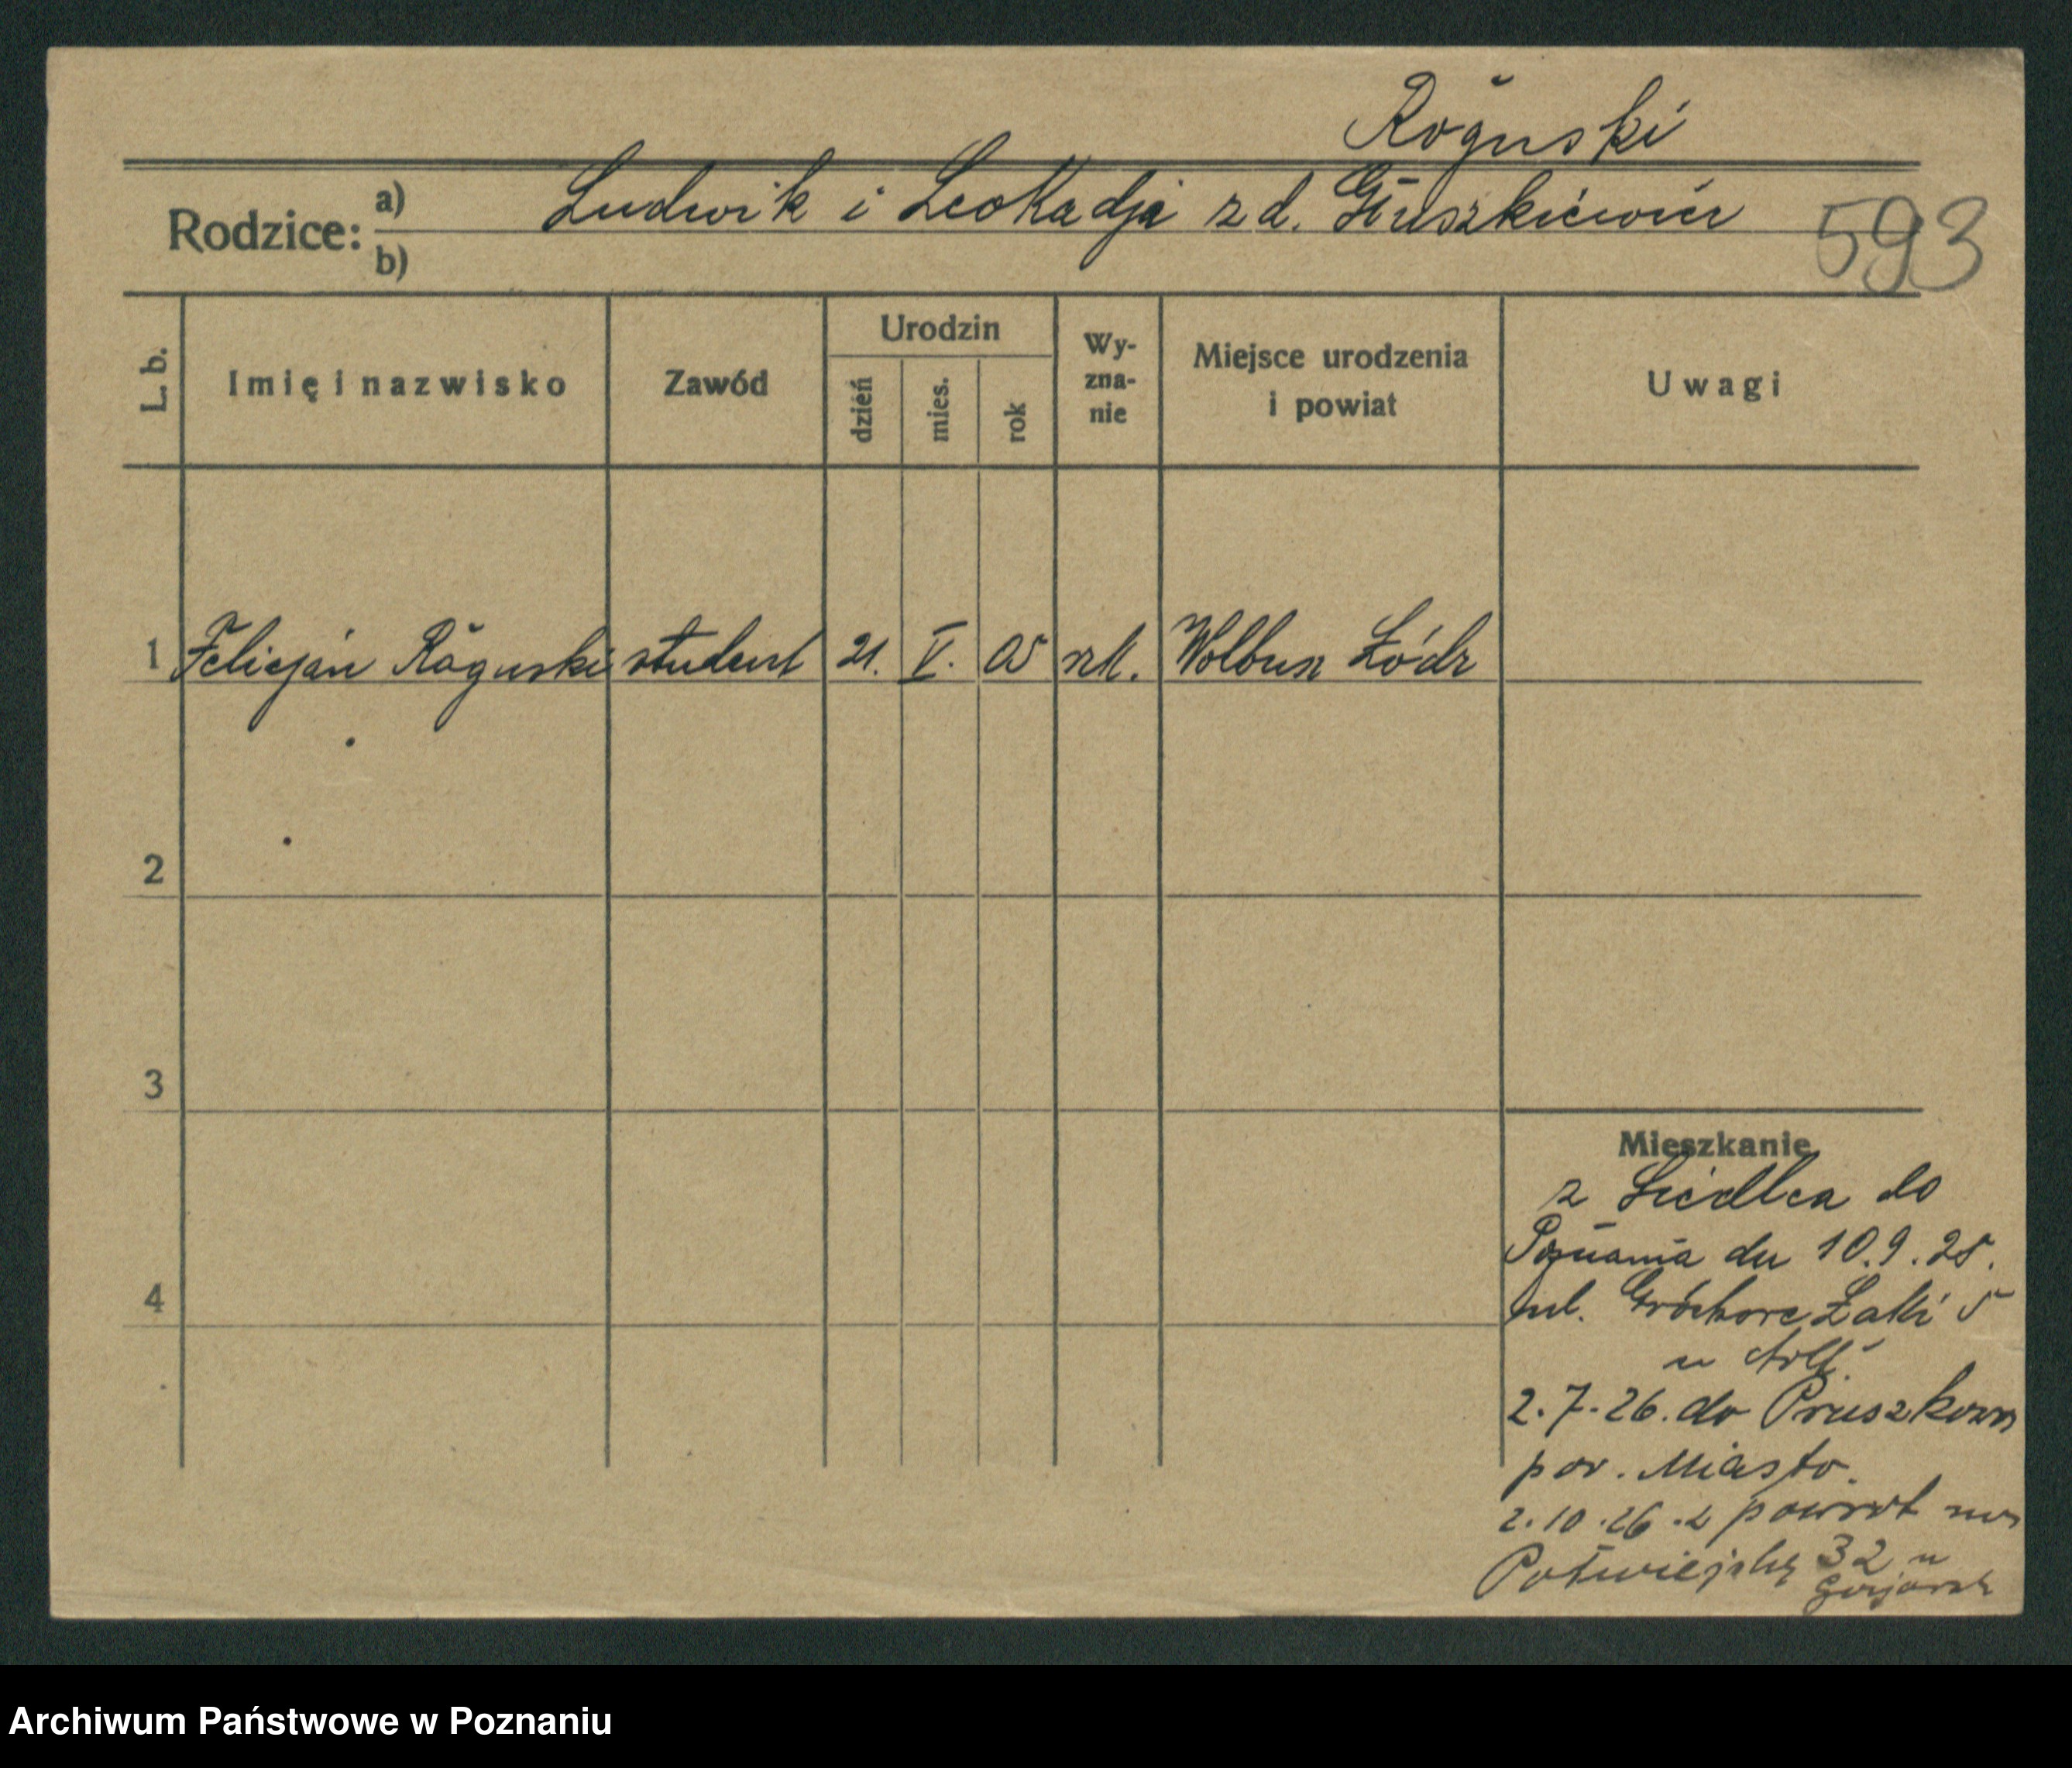 Roguski
Rodzice: a) Ludwik i Leokadja z d. Gruszkiewicz
b)
593
L. b. Imię i nazwisko Zawód Urodzin dzień mies. rok Wy-zna-nie Miejsce urodzenia i powiat Uwagi
1 Felicjan Roguski student 21. V. 05 rzk. Wolburz Łódz
2
3
Mieszkanie
z Siedlca do
Poznania dn 10.9.25.
4
ul. Grochowe Łąki 5
u
2.7.26. do Pruszkowa
pow. Miasto.
2.10.26. z powrot na
Półwiejską 32 u
Archiwum Państwowe w Poznaniu